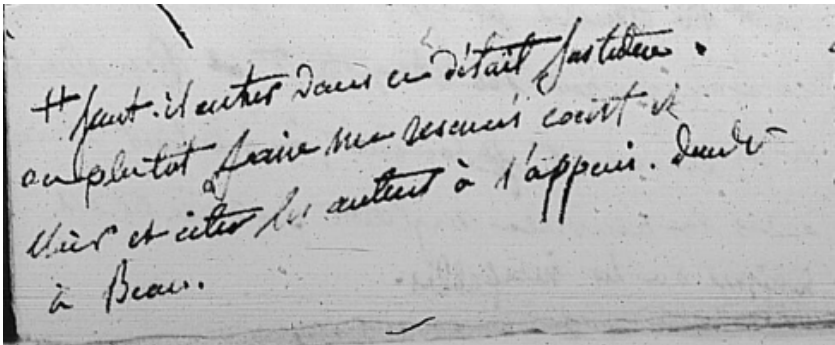 # faut-il entrer dans ce détail fastidieux.
ou plutot faire un resumé court et
clair et citer les auteurs à l'appui.
à Beau.